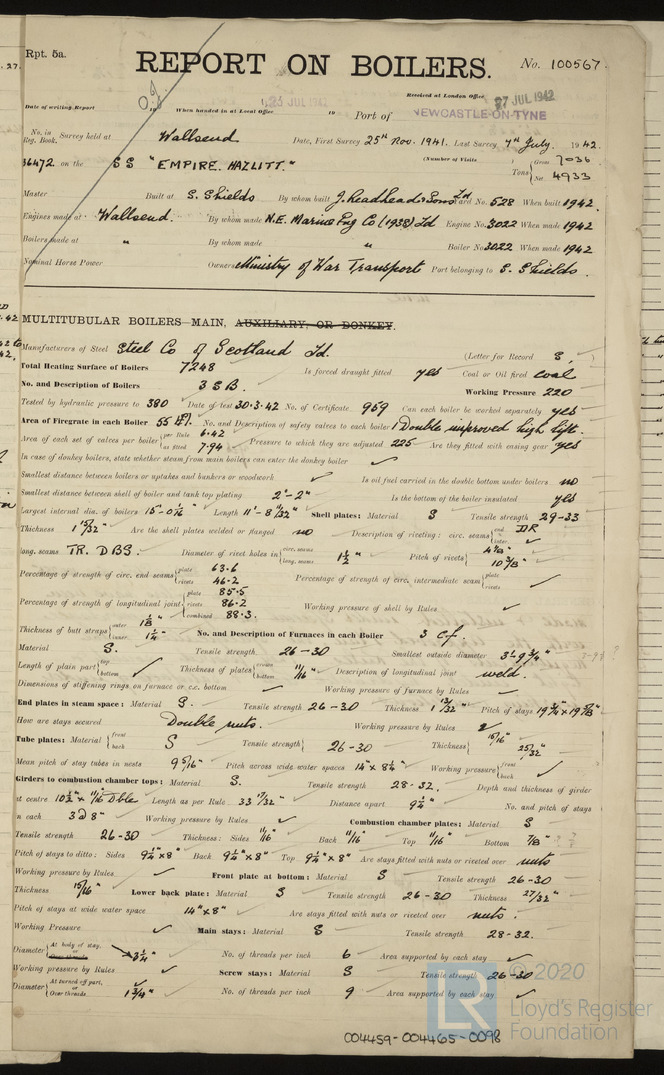 Rpt. 5a.
REPORT ON BOILERS.
No. 100567.
Received at London Office 27 JUL 1942
Date of writing Report 19 When handed in at Local Office 23 JUL 1942 19 Port of NEWCASTLE-ON-TYNE
No. in Reg. Book. Survey held at Wallsend Date, First Survey 25th Nov. 1941. Last Survey 7th July. 1942.
36472. on the SS "EMPIRE. HAZLITT." (Number of Visits ) Tons { Gross 7036 Net 4933
Master Built at S. Shields By whom built J. Readhead & Sons Ld Yard No. 528 When built 1942.
Engines made at Wallsend. By whom made N.E. Marine Eng Co (1938) Ld Engine No. 3022 When made 1942
Boilers made at " By whom made " Boiler No. 3022 When made 1942
Nominal Horse Power Owners Ministry of War Transport Port belonging to S. Shields.
MULTITUBULAR BOILERS—MAIN, AUXILIARY, OR DONKEY.
Manufacturers of Steel Steel Co of Scotland Ld. (Letter for Record S.)
Total Heating Surface of Boilers 7248 Is forced draught fitted yes Coal or Oil fired coal
No. and Description of Boilers 3 S.B. Working Pressure 220
Tested by hydraulic pressure to 380 Date of test 30.3.42 No. of Certificate 959 Can each boiler be worked separately yes
Area of Firegrate in each Boiler 55 No. and Description of safety valves to each boiler 1 Double improved high lift.
Area of each set of valves per boiler { per Rule 6.42 as fitted 7.94 Pressure to which they are adjusted 225 Are they fitted with easing gear yes
In case of donkey boilers, state whether steam from main boilers can enter the donkey boiler ✓
Smallest distance between boilers or uptakes and bunkers or woodwork ✓ Is oil fuel carried in the double bottom under boilers no
Smallest distance between shell of boiler and tank top plating 2'-2" Is the bottom of the boiler insulated yes
Largest internal dia. of boilers 15'-0 1/16" Length 11'-8 11/32" Shell plates: Material S Tensile strength 29-33
Thickness 1 15/32" Are the shell plates welded or flanged no Description of riveting: circ. seams { end DR inter. ✓
long. seams TR. DBS. Diameter of rivet holes in { circ. seams long. seams 1 1/2" Pitch of rivets { 10 3/8"
Percentage of strength of circ. end seams { plate 63.6 rivets 46.2 Percentage of strength of circ. intermediate seam { plate rivets ✓
Percentage of strength of longitudinal joint { plate 85.5 rivets 86.2 combined 88.3. Working pressure of shell by Rules ✓
Thickness of butt straps { outer 1 1/8" inner 1 1/4" No. and Description of Furnaces in each Boiler 3 c.f.
Material S. Tensile strength 26-30 Smallest outside diameter 3'-9 3/4"
Length of plain part { top bottom ✓ Thickness of plates { crown bottom 11/16" Description of longitudinal joint weld.
Dimensions of stiffening rings on furnace or c.c. bottom ✓ Working pressure of furnace by Rules ✓
End plates in steam space: Material S. Tensile strength 26-30 Thickness 1 13/32" Pitch of stays 19 3/4" x 19 7/8"
How are stays secured Double nuts. Working pressure by Rules ✓
Tube plates: Material { front back S Tensile strength { 26-30 Thickness { 15/16" 25/32"
Mean pitch of stay tubes in nests 9 5/16" Pitch across wide water spaces 14" x 8 1/4" Working pressure { front back ✓
Girders to combustion chamber tops: Material S. Tensile strength 28-32. Depth and thickness of girder
at centre 10 1/2" x 11/16 Dble Length as per Rule 33 17/32" Distance apart 9 1/4" No. and pitch of stays
in each 3 @ 8" Working pressure by Rules ✓ Combustion chamber plates: Material S
Tensile strength 26-30 Thickness: Sides 11/16" Back 11/16" Top 11/16" Bottom 7/8"
Pitch of stays to ditto: Sides 9 1/4" x 8" Back 9 1/4" x 8" Top 9 1/4" x 8" Are stays fitted with nuts or riveted over nuts
Working pressure by Rules ✓ Front plate at bottom: Material S Tensile strength 26-30
Thickness 15/16" Lower back plate: Material S Tensile strength 26-30 Thickness 27/32"
Pitch of stays at wide water space 14" x 8" Are stays fitted with nuts or riveted over nuts.
Working Pressure ✓ Main stays: Material S Tensile strength 28-32.
Diameter { At body of stay, or Over threads 3 1/4" No. of threads per inch 6 Area supported by each stay ✓
Working pressure by Rules ✓ Screw stays: Material S Tensile strength 26-30
Diameter { At turned off part, or Over threads 1 3/4" No. of threads per inch 9 Area supported by each stay ✓
© 2020
Lloyd's Register
Foundation
004459-004465-0098